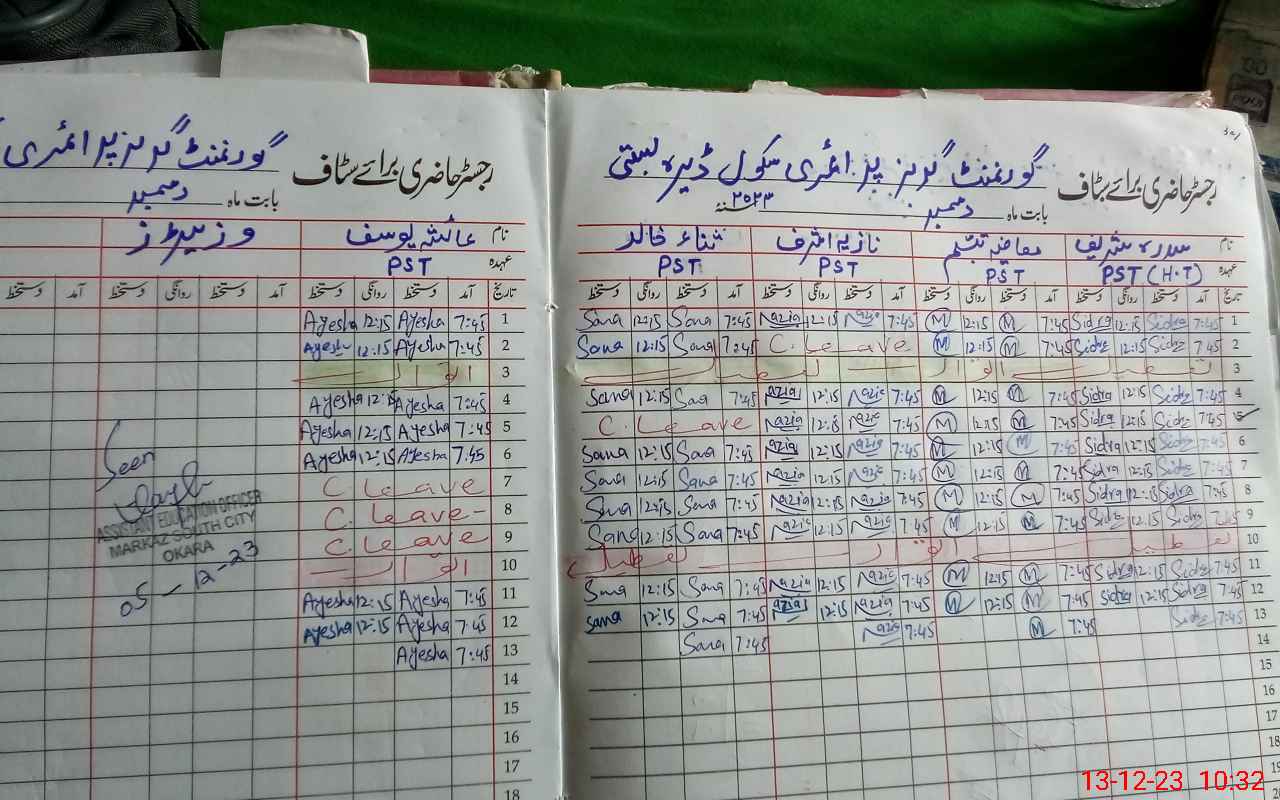 رجسٹر حاضری برائے سٹاف گورنمنٹ گرلز پرائمری سکول ڈیرہ بستی
بابت ماہ دسمبر سنہ ۲۰۲۳
نام سدرہ شریف تبسم نازیہ اشرف ثناء خالد
عہدہ PST (H.T) PST PST PST
تاریخ آمد دستخط روانگی دستخط آمد دستخط روانگی دستخط آمد دستخط روانگی دستخط آمد دستخط روانگی دستخط
1 7:45 Sidra 12:15 Sidra 7:45 M 12:15 M 7:45 Nazia 12:15 Nazia 7:45 Sana 12:15 Sana
2 7:45 Sidra 12:15 Sidra 7:45 M 12:15 M C. Leave 7:45 Sana 12:15 Sana
3 تعطیل اتوار
4 7:45 Sidra 12:15 Sidra 7:45 M 12:15 M 7:45 Nazia 12:15 Nazia 7:45 Sana 12:15 Sana
5 7:45 Sidra 12:15 Sidra 7:45 M 12:15 M 7:45 Nazia 12:15 Nazia C. Leave
6 7:45 Sidra 12:15 Sidra 7:45 M 12:15 M 7:45 Nazia 12:15 Nazia 7:45 Sana 12:15 Sana
7 7:45 Sidra 12:15 Sidra 7:45 M 12:15 M 7:45 Nazia 12:15 Nazia 7:45 Sana 12:15 Sana
8 7:45 Sidra 12:15 Sidra 7:45 M 12:15 M 7:45 Nazia 12:15 Nazia 7:45 Sana 12:15 Sana
9 7:45 Sidra 12:15 Sidra 7:45 M 12:15 M 7:45 Nazia 12:15 Nazia 7:45 Sana 12:15 Sana
10 تعطیل اتوار تعطیل
11 7:45 Sidra 12:15 Sidra 7:45 M 12:15 M 7:45 Nazia 12:15 Nazia 7:45 Sana 12:15 Sana
12 7:45 Sidra 12:15 Sidra 7:45 M 12:15 M 7:45 Nazia 12:15 Nazia 7:45 Sana 12:15 Sana
13 7:45 Sidra 7:45 M 7:45 Nazia 7:45 Sana
14
15
16
17
18
19
رجسٹر حاضری برائے سٹاف گورنمنٹ گرلز پرائمری
بابت ماہ دسمبر
نام عائشہ یوسف وزیٹرز
عہدہ PST
تاریخ آمد دستخط روانگی دستخط آمد دستخط روانگی دستخط آمد دستخط
1 7:45 Ayesha 12:15 Ayesha
2 7:45 Ayesha 12:15 Ayesha
3 اتوار
4 7:45 Ayesha 12:15 Ayesha
5 7:45 Ayesha 12:15 Ayesha
6 7:45 Ayesha 12:15 Ayesha
7 C. Leave
8 C. Leave
9 C. Leave
10 اتوار
11 7:45 Ayesha 12:15 Ayesha
12 7:45 Ayesha 12:15 Ayesha
13 7:45 Ayesha
14
15
16
17
18
Seen
ASSISTANT EDUCATION OFFICER
MARKAZ SOUTH CITY
OKARA
05-12-23
13-12-23 10:32